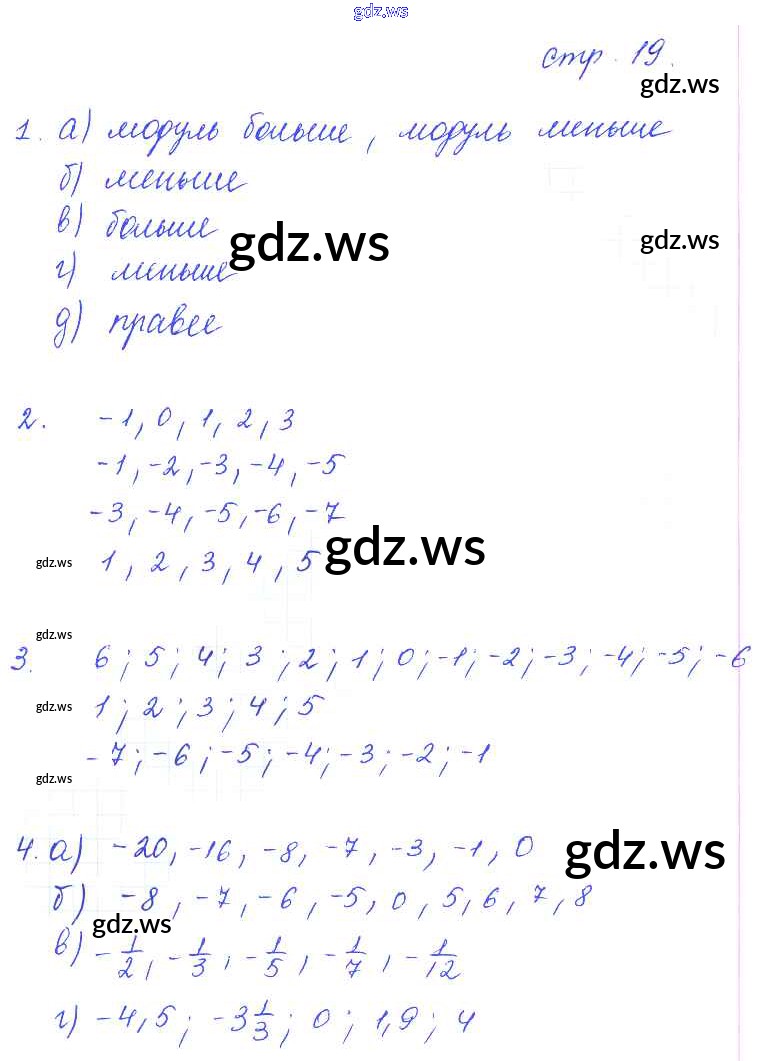 gdz.ws
стр. 19.
gdz.ws
1. а) модуль больше, модуль меньше
б) меньше
в) больше
gdz.ws
gdz.ws
г) меньше
д) правее
2. -1, 0, 1, 2, 3
-1, -2, -3, -4, -5
-3, -4, -5, -6, -7
gdz.ws
gdz.ws
1, 2, 3, 4, 5
gdz.ws
3. 6; 5; 4; 3; 2; 1; 0; -1; -2; -3; -4; -5; -6
gdz.ws
1; 2; 3; 4; 5
-7; -6; -5; -4; -3; -2; -1
gdz.ws
4. а) -20, -16, -8, -7, -3, -1, 0
gdz.ws
б) -8, -7, -6, -5, 0, 5, 6, 7, 8
gdz.ws
в) -1/2, -1/3, -1/5, -1/7, -1/12
г) -4,5; -3 1/3; 0; 1,9; 4